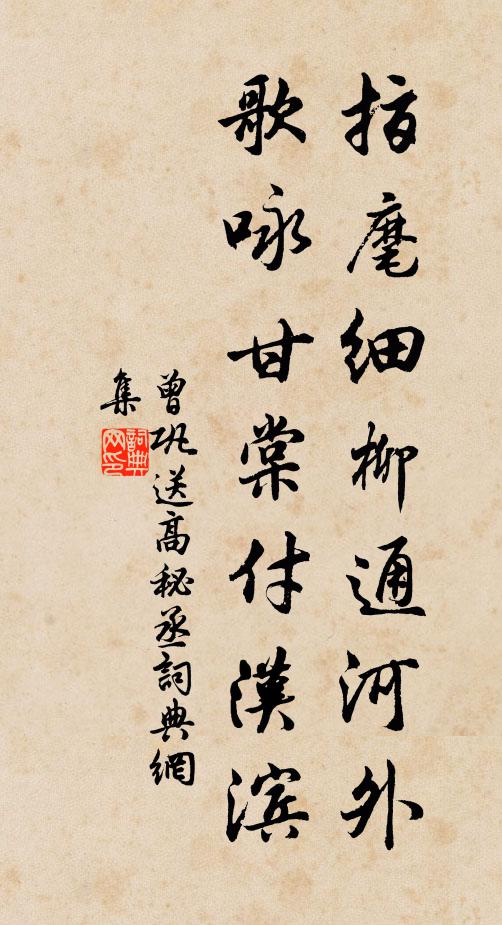 指麾细柳通河外
歌咏甘棠付漢滨
曾巩送高秘丞詞典網
集
詞典
网印